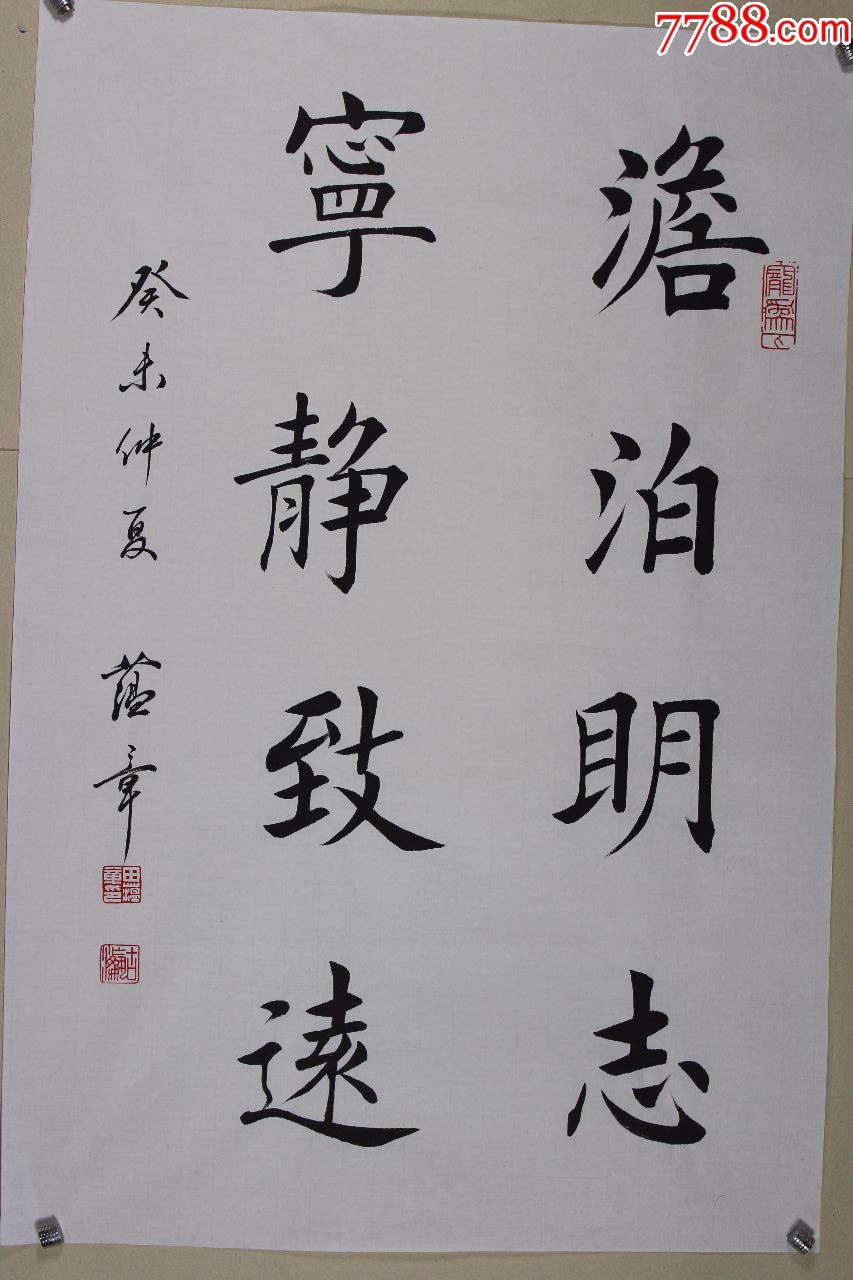 7788.com
澹泊明志
寧静致遠
癸未仲夏 蕴章